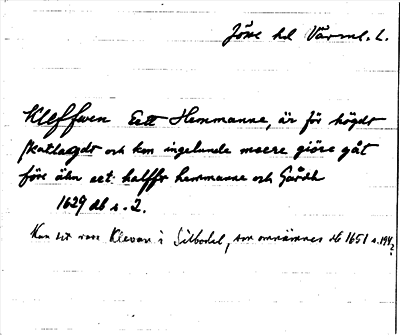 Jösse hd Värml. L.
Kleffwen Ett Hemmanne, är för högdt
skattlagdt och kan ingelunda meere giöre gåt
före ähn ett halfft hemmanne och Gårdh
1629 db s. 2.
Kan det vara Klevan i Silbodal, som omnämnes db 1651 s. 194?